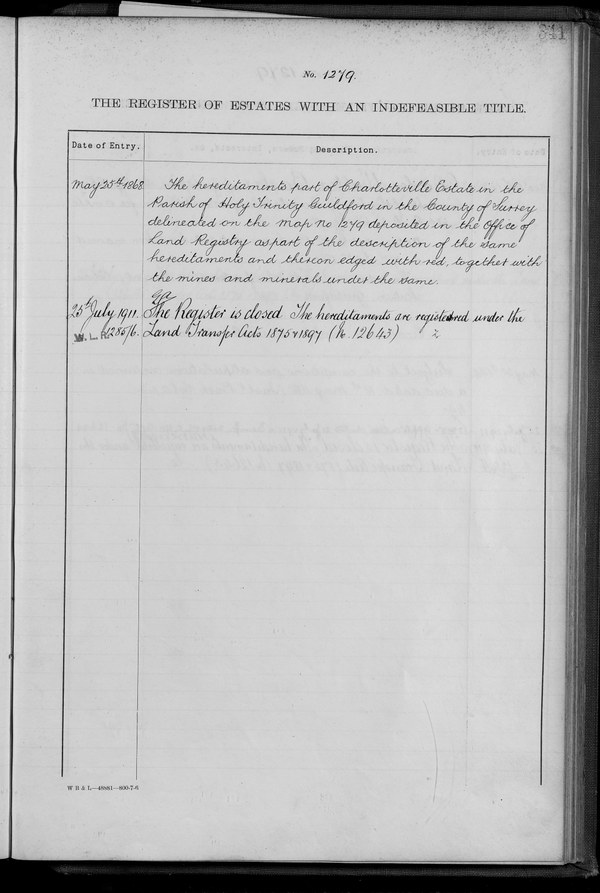 341
No. 1279.
THE REGISTER OF ESTATES WITH AN INDEFEASIBLE TITLE.
Date of Entry.
Description.
May 25th 1868.
The hereditaments part of Charlotteville Estate in the
Parish of Holy Trinity Guildford in the County of Surrey
delineated on the Map No 1279 deposited in the Office of
Land Registry as part of the description of the same
hereditaments and thereon edged with red, together with
the mines and minerals under the same.
25th July 1911.
The Register is closed The hereditaments are registered under the
1285/6.
Land Transfer Acts 1875 & 1897 (No 12643)
W B & L—48861—800-7-6